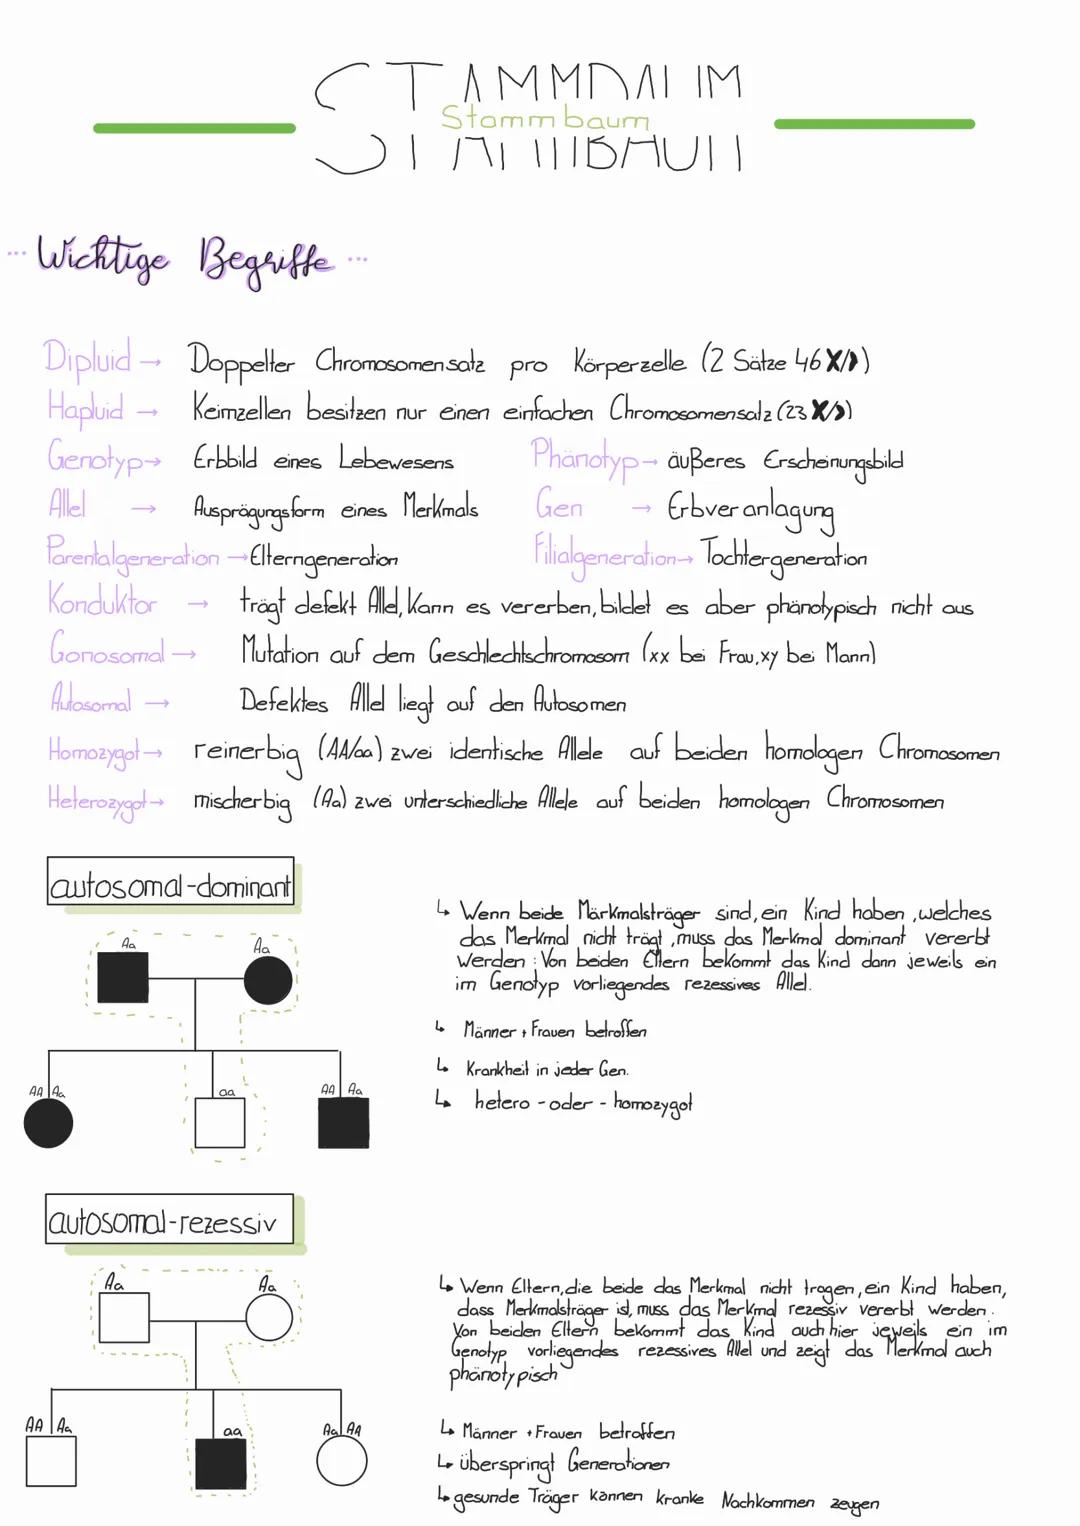 STAMMBAUM
Stammbaum
Wichtige Begriffe
Dipluid → Doppelter Chromosomensatz pro Körperzelle (2 Sätze 46 X/)
Hapluid → Keimzellen besitzen nur einen einfachen Chromosomensatz (23 X/)
Genotyp → Erbbild eines Lebewesens Phänotyp → äußeres Erscheinungsbild
Allel → Ausprägungsform eines Merkmals Gen → Erbveranlagung
Parentalgeneration → Elterngeneration Filialgeneration → Tochtergeneration
Konduktor → trägt defekt Allel, Kann es vererben, bildet es aber phänotypisch nicht aus
Gonosomal → Mutation auf dem Geschlechtschromosom (xx bei Frau, xy bei Mann)
Autosomal → Defektes Allel liegt auf den Autosomen
Homozygot → reinerbig (AA/aa) zwei identische Allele auf beiden homologen Chromosomen
Heterozygot → mischerbig (Aa) zwei unterschiedliche Allele auf beiden homologen Chromosomen
autosomal-dominant
Aa Aa
AA Aa aa AA Aa
↳ Wenn beide Märkmalsträger sind, ein Kind haben, welches
das Merkmal nicht trägt, muss das Merkmal dominant vererbt
werden: Von beiden Eltern bekommt das Kind dann jeweils ein
im Genotyp vorliegendes rezessives Allel.
↳ Männer + Frauen betroffen
↳ Krankheit in jeder Gen.
↳ hetero-oder-homozygot
autosomal-rezessiv
Aa Aa
AA Aa aa Aa AA
↳ Wenn Eltern, die beide das Merkmal nicht tragen, ein Kind haben,
dass Merkmalsträger ist, muss das Merkmal rezessiv vererbt werden.
Von beiden Eltern bekommt das Kind auch hier jeweils ein im
Genotyp vorliegendes rezessives Allel und zeigt das Merkmal auch
phänotypisch
↳ Männer + Frauen betroffen
↳ überspringt Generationen
↳ gesunde Träger können kranke Nachkommen zeugen